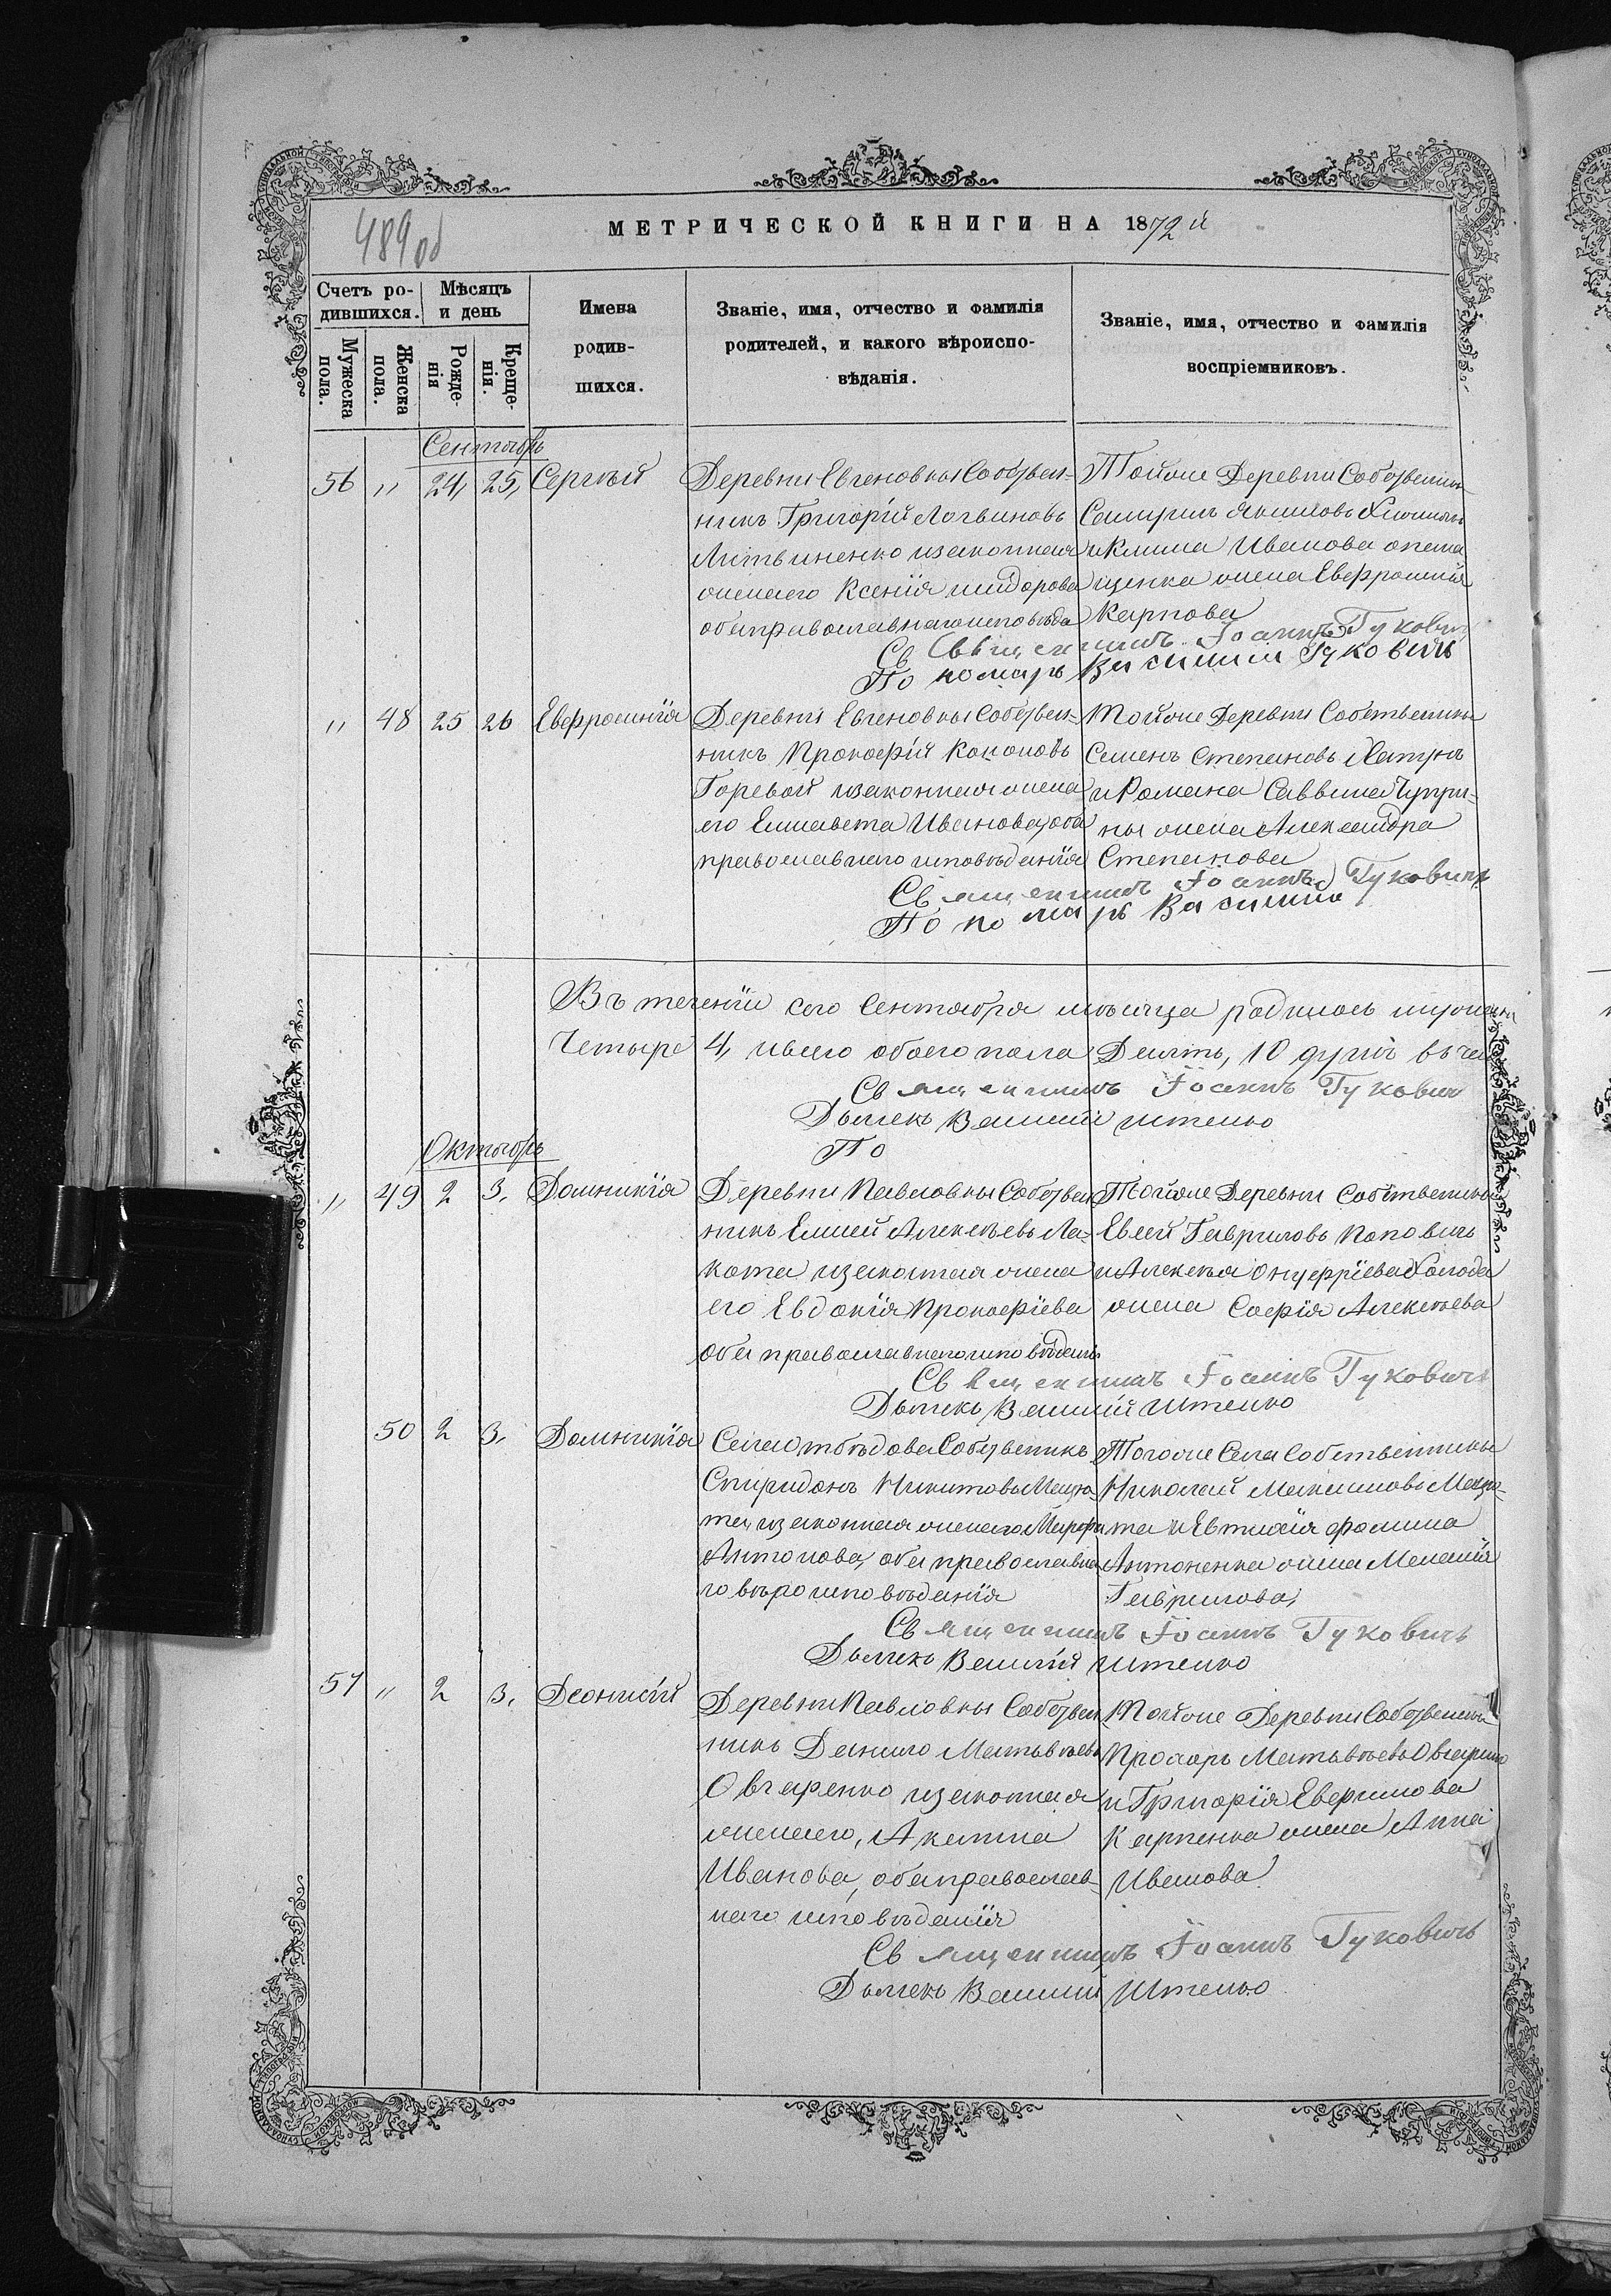 489 об
МЕТРИЧЕСКОЙ КНИГИ НА 1872 й
Счетъ ро-
дившихся.
Мѣсяцъ
и день
Мужеска
пола.
Женска
пола.
Рожде-
нія
Креще-
нія.
Имена
родив-
шихся.
Званіе, имя, отчество и фамилія
родителей, и какого вѣроиспо-
вѣданія.
Званіе, имя, отчество и фамилія
воспріемниковъ.
Сентябрь
56 " 24, 25, Сергѣй
Деревни Евгеновки Собствен-
никъ Григорій Логвиновъ
Литвиненко изаконная
женаего Ксенія
оба православнагоисповѣда
Тойже Деревни Собственики
Якимовъ
иКлима Иванова
щенка жена Евфросинія
Карпова
Священникъ Іоаннъ Гуковичъ
Пономарь Василий Гуковичъ
" 48 25 26 Евфросинія
Деревни Евгеновки Собствен-
никъ Прокофій Кононовъ
Горевой изаконная жена
его Елисавета Иванова, оба
православнаго исповѣданія
Тойже Деревни Собственики
Семенъ Степановъ
иРомана Саввина Чупри-
ны жена Александра
Степанова
Священникъ Іоаннъ Гуковичъ
Пономарь Василий
Въ теченіи сего Сентября мѣсяца родилось
Четыре 4, ивсего обоего пола Десять, 10 душъ
Священникъ Іоаннъ Гуковичъ
Дьячекъ Василій Штепко
По
Октябрь
" 49 2 3, Домникія
Деревни Павловки Собствен
никъ Елисей Алексѣевъ Ла-
кота изаконная жена
его Евдокія Прокофіева
оба православнагоисповѣдань
Тойже Деревни Собственики
Евсей Гавриловъ Поповичъ
иАлексѣя Онуфріева Холода
жена Софія Алексѣева
Священникъ Іоаннъ Гуковичъ
Дьячекъ Василий Штепко
50 2 3, Домникія
Села Отбѣдова Собственикъ
Спиридонъ Никитовъ
та, изаконная женаего Марфа
Антонова, оба православна
го вѣроисповѣданія
Тогоже Села Собственники
Николай Максимовъ
та и Евтихія Фомина
Антоненка жена Меланія
Гаврилова,
Священникъ Іоаннъ Гуковичъ
Дьячекъ Василій Штепко
57 " 2 3, Деонисій
Деревни Павловки Собствен
никъ Данило Матвѣевъ
Овчаренко изаконная
женаего, Акилина
Иванова, оба православ-
наго исповѣданія
Тойже Деревни Собственики
Прохоръ Матвѣевъ Овчаренко
и Григорія Евфимова
Карпенка жена Анна
Иванова
Священникъ Іоаннъ Гуковичъ
Дьячекъ Василий Штепко